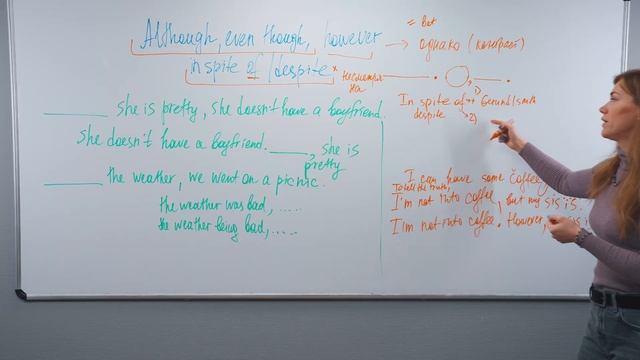 Although, even though, however
= but
→ однако (контраст)
in spite of / despite
несмотря на
In spite of → 1) Gerund/smth
despite → 2)
______ she is pretty, she doesn't have a boyfriend.
She doesn't have a boyfriend. ______, she is pretty
______ the weather, we went on a picnic.
the weather was bad, .....
the weather being bad, .....
I can have some coffee
To tell the truth,
I'm not into coffee, but my sis is.
I'm not into coffee. However, sis is